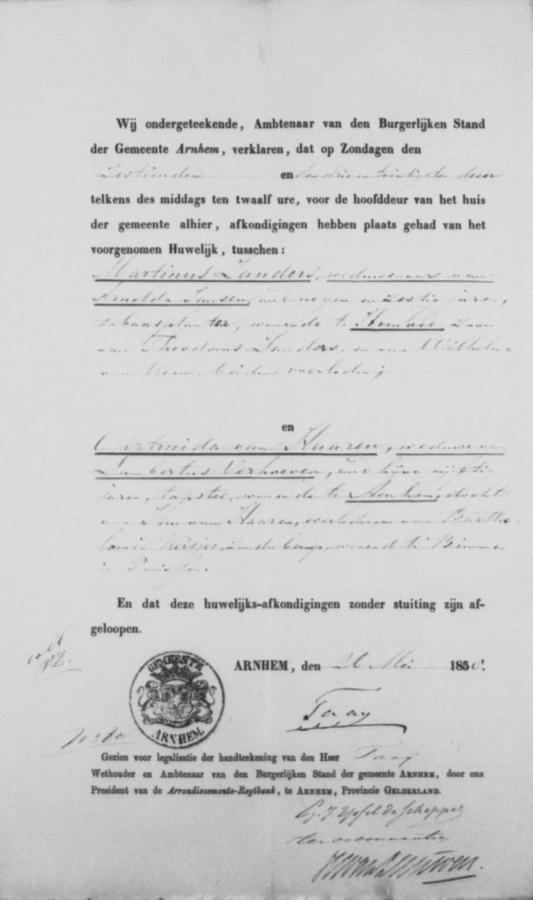 Wij ondergeteekende, Ambtenaar van den Burgerlijken Stand
der Gemeente Arnhem, verklaren, dat op Zondagen den
Zestienden en den drie en twintigsten dezer
telkens des middags ten twaalf ure, voor de hoofddeur van het huis
der gemeente alhier, afkondigingen hebben plaats gehad van het
voorgenomen Huwelijk, tusschen:
Martinus Sanders, weduwenaar van
Arnolda Jansen, oud negen en zestig jaren,
tabaksplanter, wonende te zoon
van Theodorus Sanders, en van Wilhelmina
van beiden overleden;
en
Gertruida van Haaren, weduwe van
Lambertus Verhoeven, oud bijna vijftig
jaren, tapster, wonende te Arnhem, dochter
van Jan van Haaren, overleden en van Bartho-
lomea zonder beroep, wonende te Bimmen
in Pruissen.
En dat deze huwelijks-afkondigingen zonder stuiting zijn af-
geloopen.
ARNHEM, den 26 Mei 1850.
GEMEENTE
ARNHEM
Gezien voor legalisatie der handteekening van den Heer
Wethouder en Ambtenaar van den Burgerlijken Stand der gemeente ARNHEM, door ons
President van de Arrondissements-Regtbank, te ARNHEM, Provincie GELDERLAND.